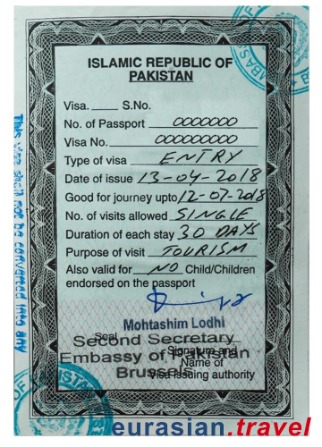 ISLAMIC REPUBLIC OF
PAKISTAN
Visa. ____ S.No.
No. of Passport 0000000
Visa No. 000000000
Type of visa ENTRY
Date of issue 13-04-2018
Good for journey upto 12-07-2018
No. of visits allowed SINGLE
Duration of each stay 30 DAYS
Purpose of visit TOURISM
Also valid for NO Child/Children
endorsed on the passport
Mohtashim Lodhi
Seal
Second Secretary
Signature and
Embassy of Pakistan
Name of
Brussels
Visa issuing authority
This visa shall not be converted into any
eurasian.travel